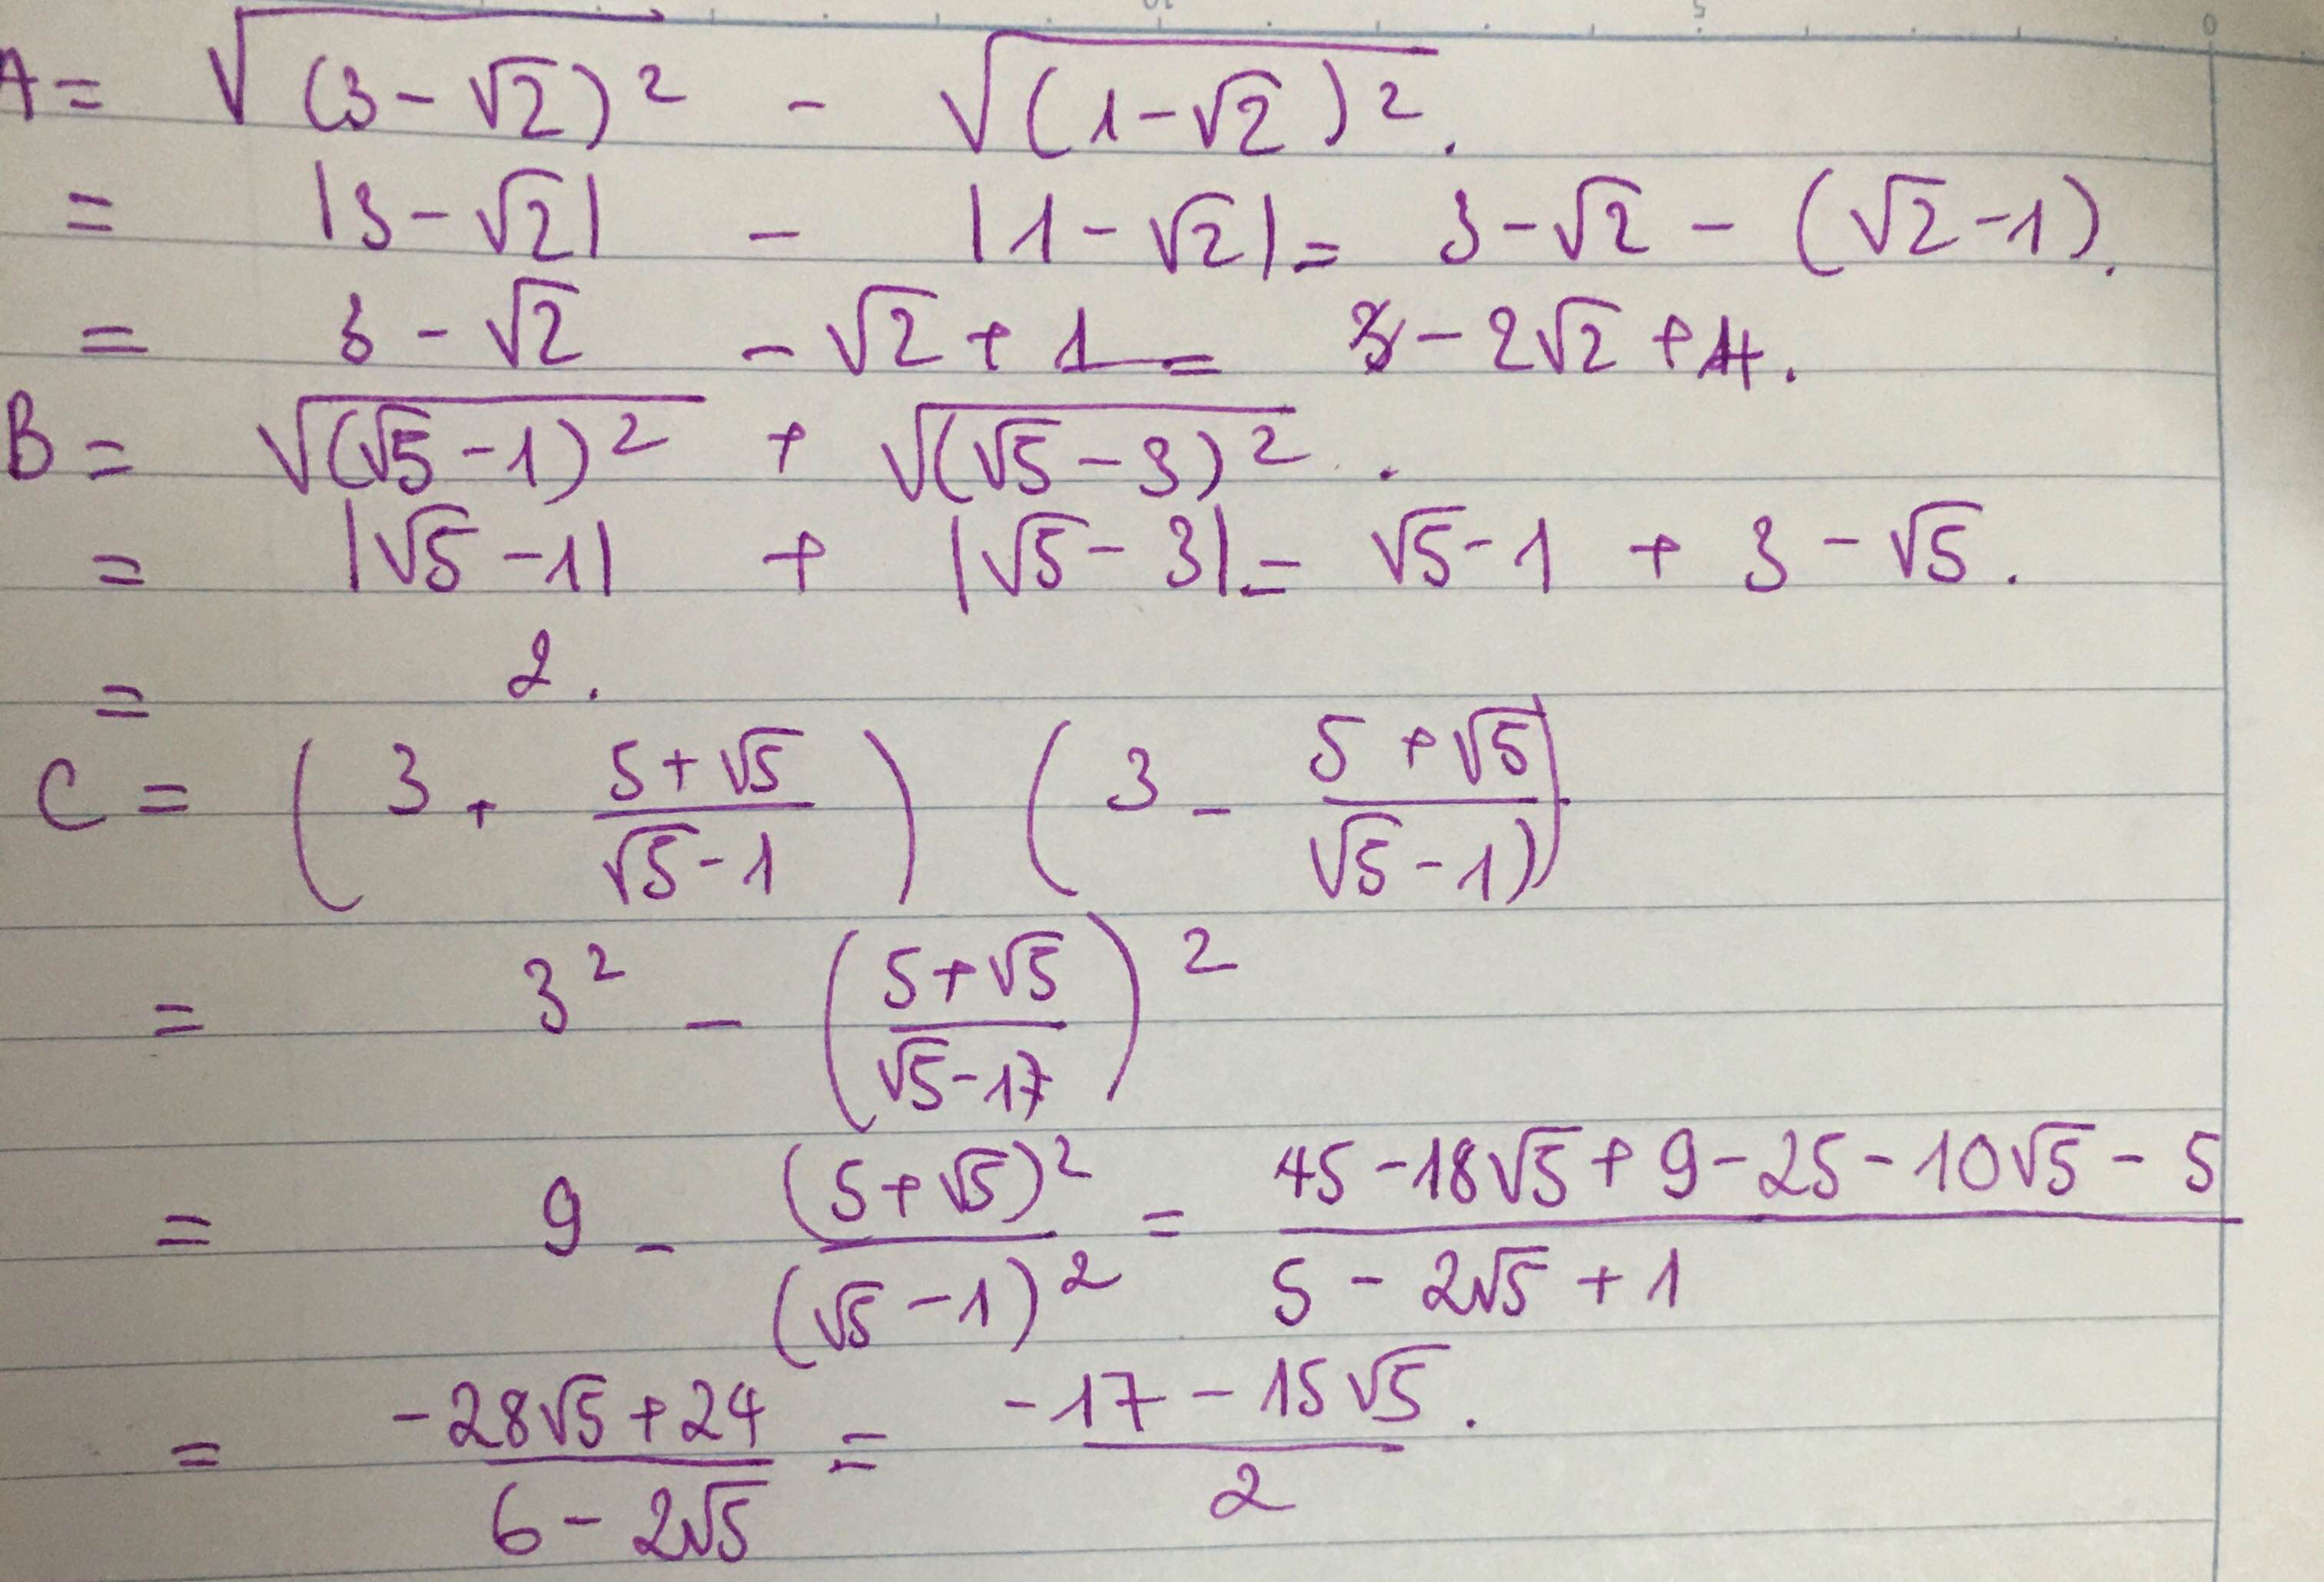 A = √(3-√2)² - √(1-√2)².
= |3-√2| - |1-√2| = 3-√2 - (√2-1).
= 3 - √2 - √2 + 1 = - 2√2 + 4.
B = √(√5-1)² + √(√5-3)².
= |√5-1| + |√5-3| = √5-1 + 3-√5.
= 2.
C = (3 + (5+√5)/(√5-1)) (3 - (5+√5)/(√5-1))
= 3² - ((5+√5)/(√5-17))²
= 9 - (5+√5)²/(√5-1)² = (45-18√5+9-25-10√5-5)/(5-2√5+1)
= (-28√5+24)/(6-2√5) = (-17-15√5)/2.